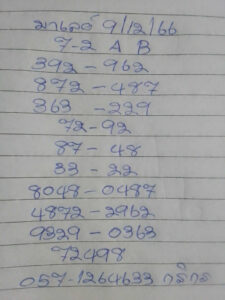 มาเลย์ 9/12/66
7-2 A B
392-962
872-487
363 -229
72-92
87-48
33-22
8048-0487
4872-2962
9329-0363
72498
057-1264633 กสิกร